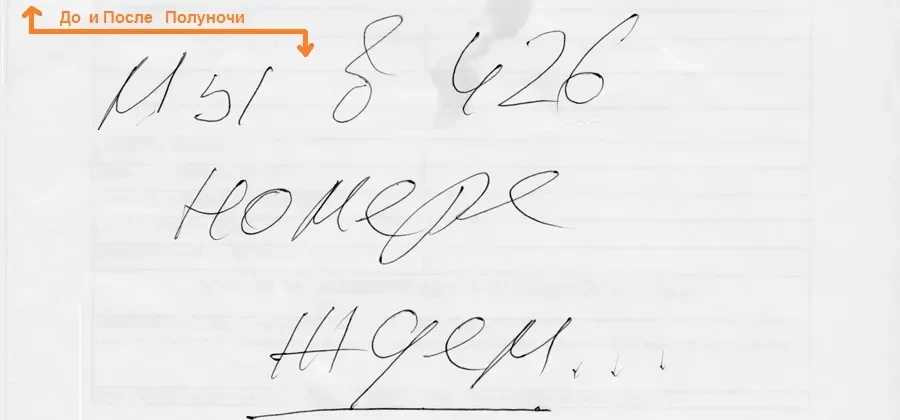 До и После Полуночи
Мы в 426
номере
Ждем...